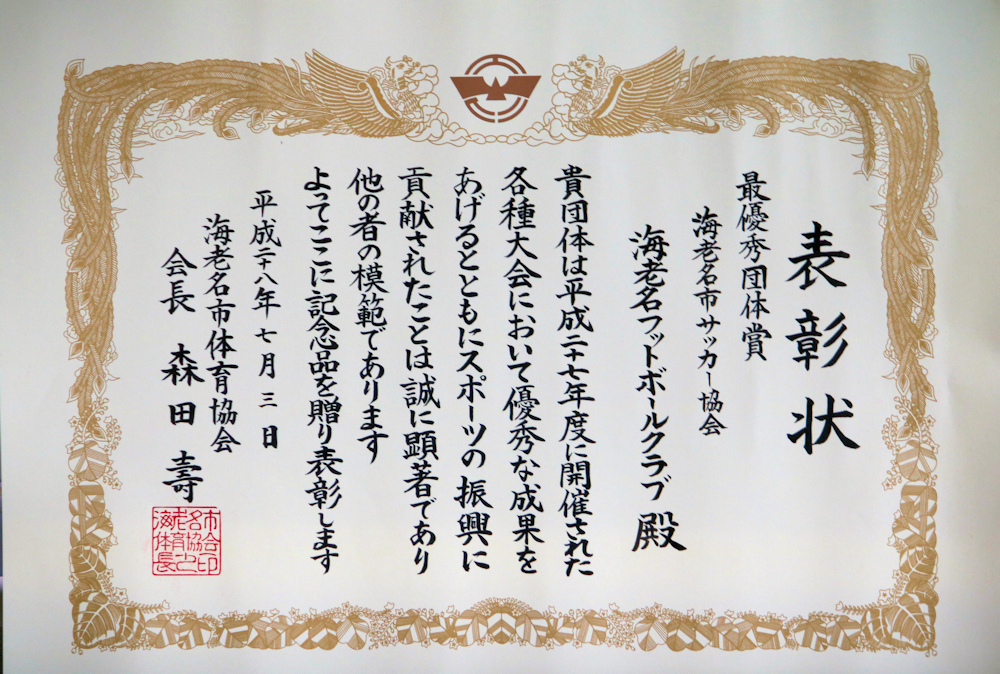 表彰状
最優秀団体賞
海老名市サッカー協会
海老名フットボールクラブ 殿
貴団体は平成二十七年度に開催された
各種大会において優秀な成果を
あげるとともにスポーツの振興に
貢献されたことは誠に顕著であり
他の者の模範であります
よってここに記念品を贈り表彰します
平成二十八年七月三日
海老名市体育協会
会長 森田壽